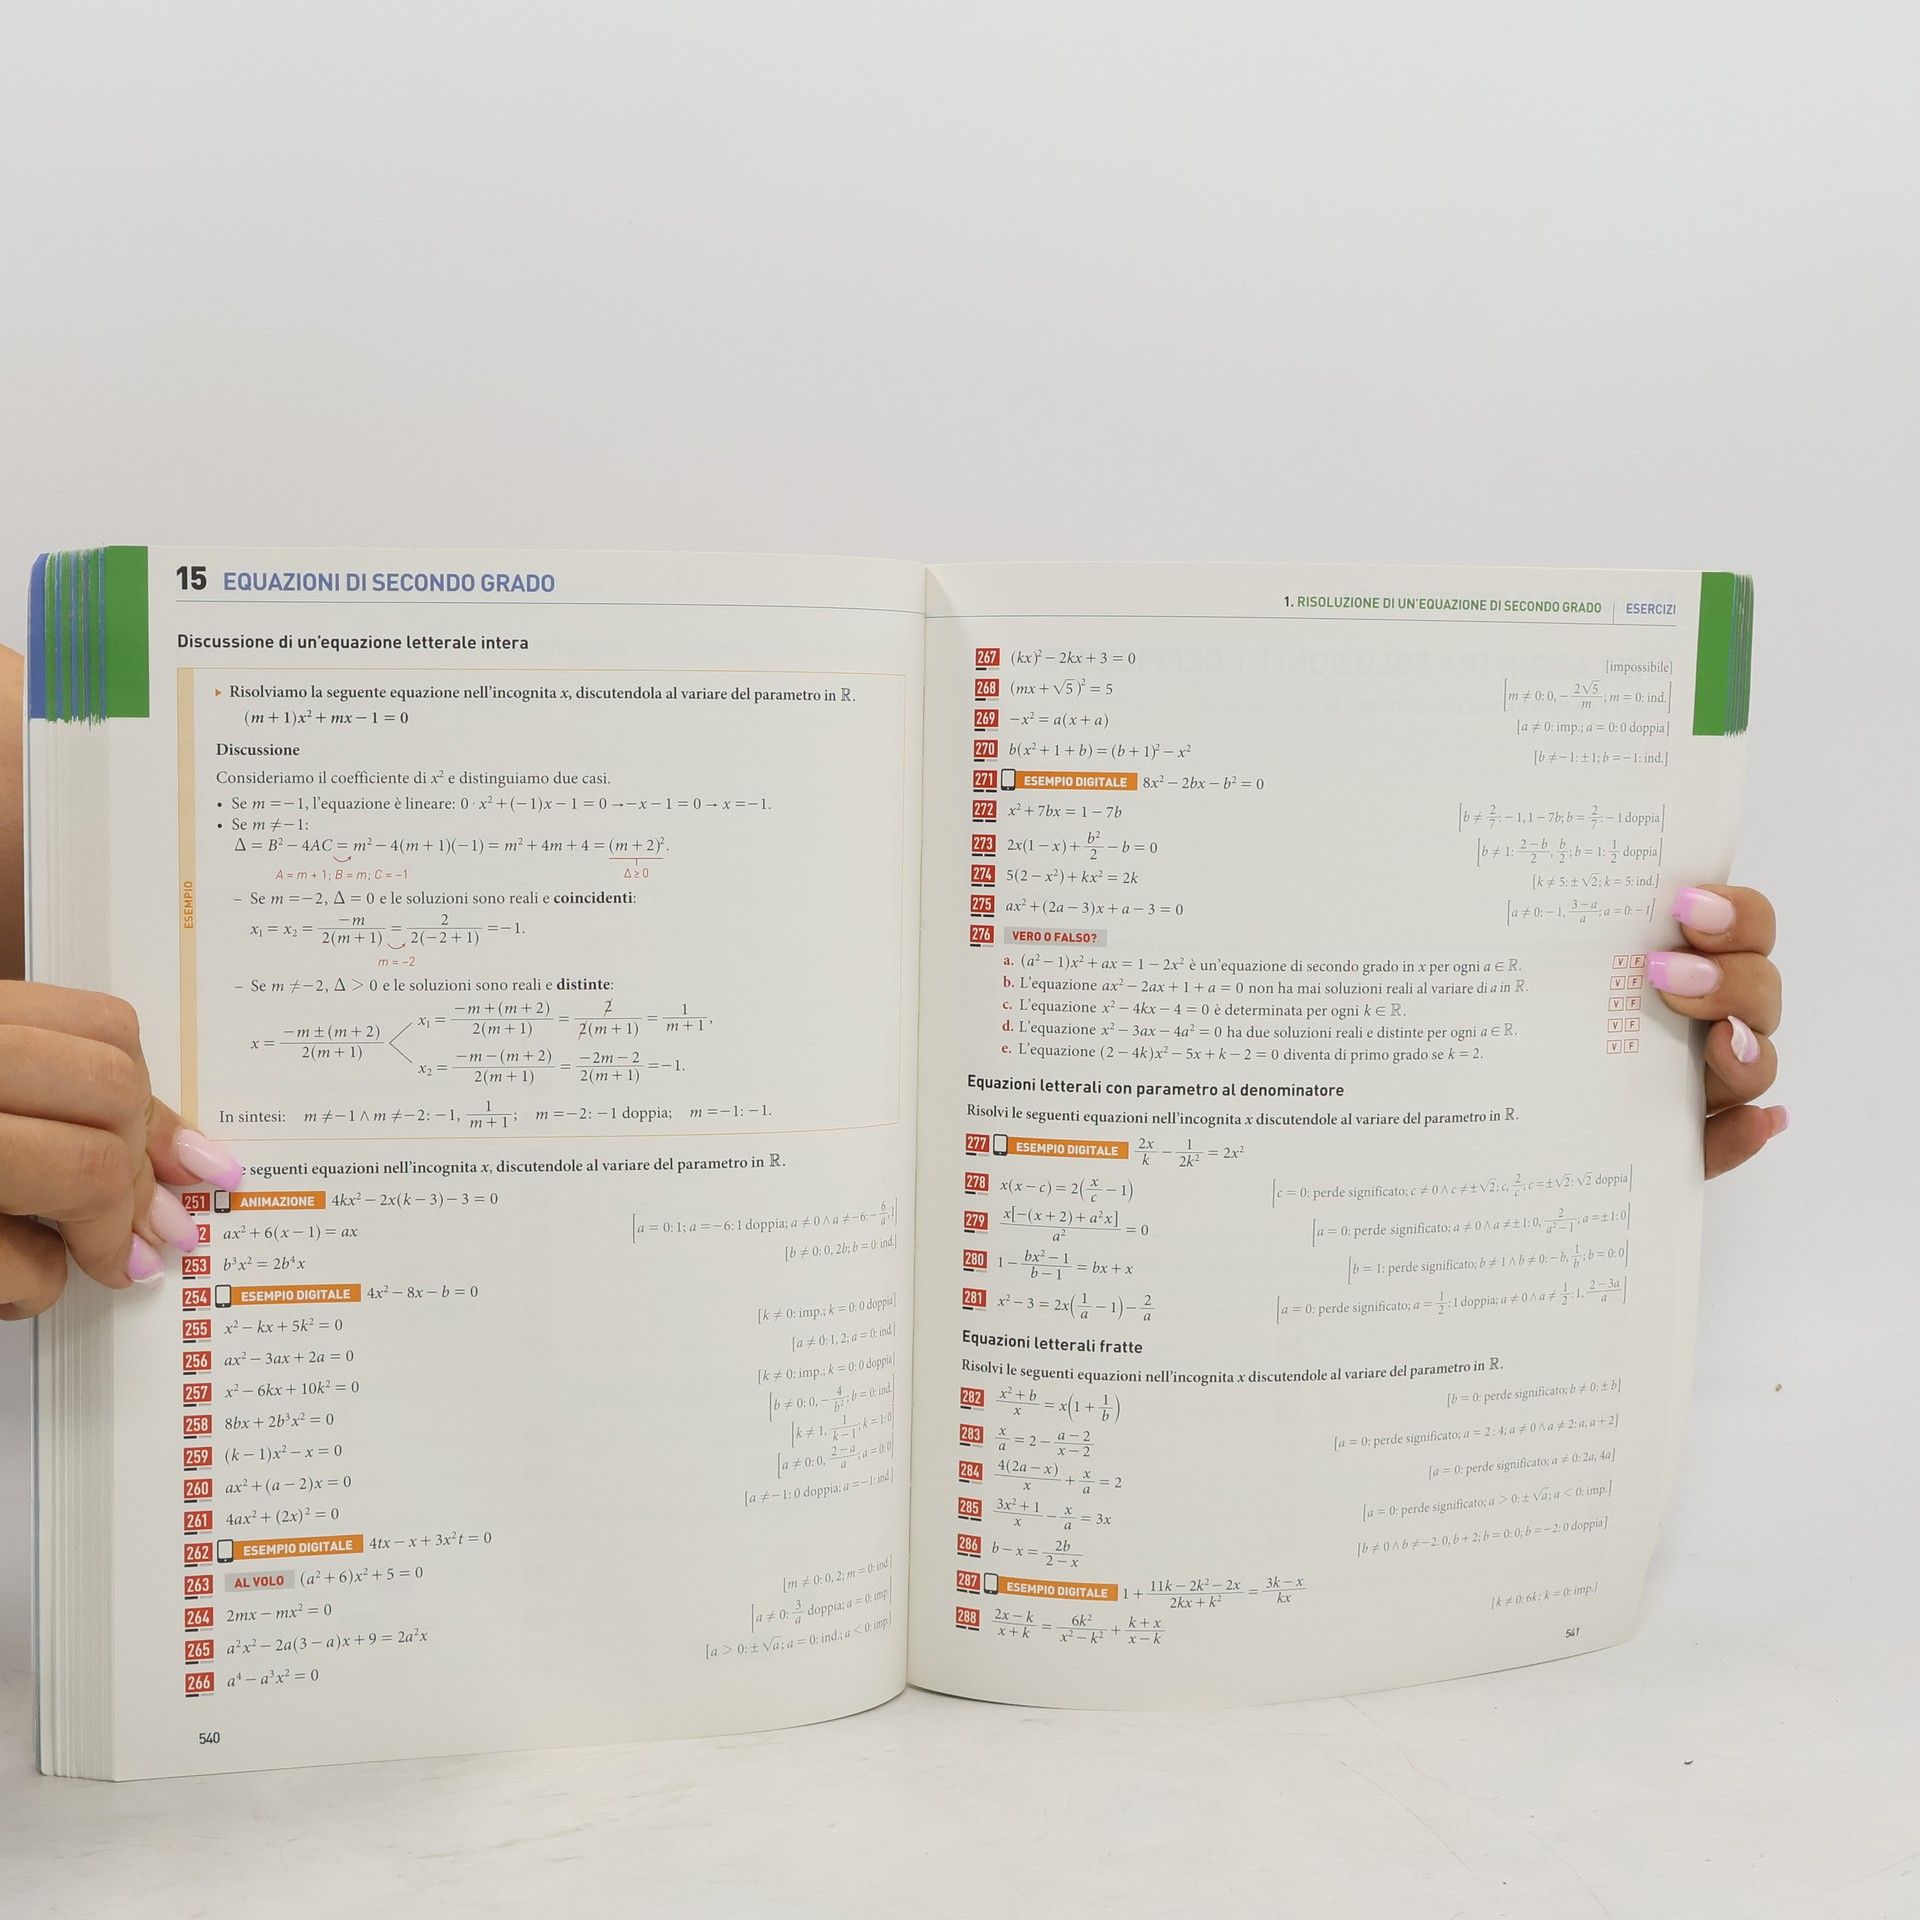 15 EQUAZIONI DI SECONDO GRADO
Discussione di un'equazione letterale intera
ESEMPIO
▸ Risolviamo la seguente equazione nell'incognita x, discutendola al variare del parametro in ℝ.
(m + 1)x² + mx − 1 = 0
Discussione
Consideriamo il coefficiente di x² e distinguiamo due casi.
• Se m = −1, l'equazione è lineare: 0 · x² + (−1)x − 1 = 0 → −x − 1 = 0 → x = −1.
• Se m ≠ −1:
Δ = B² − 4AC = m² − 4(m + 1)(−1) = m² + 4m + 4 = (m + 2)².
A = m + 1; B = m; C = −1 Δ ≥ 0
– Se m = −2, Δ = 0 e le soluzioni sono reali e coincidenti:
x₁ = x₂ = −m/2(m + 1) = 2/2(−2 + 1) = −1.
m = −2
– Se m ≠ −2, Δ > 0 e le soluzioni sono reali e distinte:
x = −m ± (m + 2)/2(m + 1)
x₁ = −m + (m + 2)/2(m + 1) = 2/2(m + 1) = 1/m + 1,
x₂ = −m − (m + 2)/2(m + 1) = −2m − 2/2(m + 1) = −1.
In sintesi: m ≠ −1 ∧ m ≠ −2: −1, 1/m + 1; m = −2: −1 doppia; m = −1: −1.
seguenti equazioni nell'incognita x, discutendole al variare del parametro in ℝ.
251 ANIMAZIONE 4kx² − 2x(k − 3) − 3 = 0
2 ax² + 6(x − 1) = ax [a = 0: 1; a = −6: 1 doppia; a ≠ 0 ∧ a ≠ −6: −6/a, 1]
253 b³x² = 2b⁴x [b ≠ 0: 0, 2b; b = 0: ind.]
254 ESEMPIO DIGITALE 4x² − 8x − b = 0
255 x² − kx + 5k² = 0 [k ≠ 0: imp.; k = 0: 0 doppia]
256 ax² − 3ax + 2a = 0 [a ≠ 0: 1, 2; a = 0: ind.]
257 x² − 6kx + 10k² = 0 [k ≠ 0: imp.; k = 0: 0 doppia]
258 8bx + 2b³x² = 0 [b ≠ 0: 0, −4/b²; b = 0: ind.]
259 (k − 1)x² − x = 0 [k ≠ 1, 1/k − 1; k = 1: 0]
260 ax² + (a − 2)x = 0 [a ≠ 0: 0, 2 − a/a; a = 0: 0]
261 4ax² + (2x)² = 0 [a ≠ −1: 0 doppia; a = −1: ind.]
262 ESEMPIO DIGITALE 4tx − x + 3x²t = 0
263 AL VOLO (a² + 6)x² + 5 = 0
264 2mx − mx² = 0 [m ≠ 0: 0, 2; m = 0: ind.]
265 a²x² − 2a(3 − a)x + 9 = 2a²x [a ≠ 0: 3/a doppia; a = 0: imp.]
266 a⁴ − a³x² = 0 [a > 0: ± √a; a = 0: ind.; a < 0: imp.]
540
1. RISOLUZIONE DI UN'EQUAZIONE DI SECONDO GRADO ESERCIZI
267 (kx)² − 2kx + 3 = 0 [impossibile]
268 (mx + √5)² = 5 [m ≠ 0: 0, −2√5/m; m = 0: ind.]
269 −x² = a(x + a) [a ≠ 0: imp.; a = 0: 0 doppia]
270 b(x² + 1 + b) = (b + 1)² − x² [b ≠ −1: ±1; b = −1: ind.]
271 ESEMPIO DIGITALE 8x² − 2bx − b² = 0
272 x² + 7bx = 1 − 7b [b ≠ 2/7: −1, 1 − 7b; b = 2/7: −1 doppia]
273 2x(1 − x) + b²/2 − b = 0 [b ≠ 1: 2 − b/2, b/2; b = 1: 1/2 doppia]
274 5(2 − x²) + kx² = 2k [k ≠ 5: ± √2; k = 5: ind.]
275 ax² + (2a − 3)x + a − 3 = 0 [a ≠ 0: −1, 3 − a/a; a = 0: −1]
276 VERO O FALSO?
a. (a² − 1)x² + ax = 1 − 2x² è un'equazione di secondo grado in x per ogni a ∈ ℝ. V F
b. L'equazione ax² − 2ax + 1 + a = 0 non ha mai soluzioni reali al variare di a in ℝ. V F
c. L'equazione x² − 4kx − 4 = 0 è determinata per ogni k ∈ ℝ. V F
d. L'equazione x² − 3ax − 4a² = 0 ha due soluzioni reali e distinte per ogni a ∈ ℝ. V F
e. L'equazione (2 − 4k)x² − 5x + k − 2 = 0 diventa di primo grado se k = 2. V F
Equazioni letterali con parametro al denominatore
Risolvi le seguenti equazioni nell'incognita x discutendole al variare del parametro in ℝ.
277 ESEMPIO DIGITALE 2x/k − 1/2k² = 2x²
278 x(x − c) = 2(x/c − 1) [c = 0: perde significato; c ≠ 0 ∧ c ≠ ±√2: c, 2/c; c = ±√2: √2 doppia]
279 x[−(x + 2) + a²x]/a² = 0 [a = 0: perde significato; a ≠ 0 ∧ a ≠ ±1: 0, 2/a² − 1; a = ±1: 0]
280 1 − bx² − 1/b − 1 = bx + x [b = 1: perde significato; b ≠ 1 ∧ b ≠ 0: −b, 1/b; b = 0: 0]
281 x² − 3 = 2x(1/a − 1) − 2/a [a = 0: perde significato; a = 1/2: 1 doppia; a ≠ 0 ∧ a ≠ 1/2: 1, 2 − 3a/a]
Equazioni letterali fratte
Risolvi le seguenti equazioni nell'incognita x discutendole al variare del parametro in ℝ.
282 x² + b/x = x(1 + 1/b) [b = 0: perde significato; b ≠ 0: ± b]
283 x/a = 2 − a − 2/x − 2 [a = 0: perde significato; a = 2: 4; a ≠ 0 ∧ a ≠ 2: a, a + 2]
284 4(2a − x)/x + x/a = 2 [a = 0: perde significato; a ≠ 0: 2a, 4a]
285 3x² + 1/x − x/a = 3x [a = 0: perde significato; a > 0: ± √a; a < 0: imp.]
286 b − x = 2b/2 − x [b ≠ 0 ∧ b ≠ −2: 0, b + 2; b = 0: 0; b = −2: 0 doppia]
287 ESEMPIO DIGITALE 1 + 11k − 2k² − 2x/2kx + k² = 3k − x/kx
288 2x − k/x + k = 6k²/x² − k² + k + x/x − k [k ≠ 0: 6k; k = 0: imp.]
541